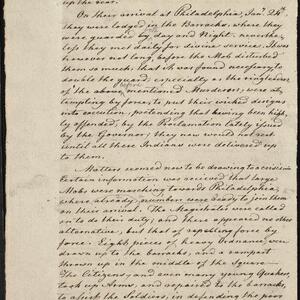 up the rear.
On their arrival at Philadelphia, Jany. 24th.
they were lodged in the Barracks, where they
were guarded by day and Night. neverthe-
less they met daily for divine service. It was
however not long, before the Mob disturbed
them so much, that it was found necessary to
double the guard, especially as the ringleaders
of the above mentioned Murderers, were at-
tempting by force, to put their wicked designs
into execution, pretending that being been high-
ly offended, by the Proclamation lately issued
by the Governor; they now would not rest
until all these Indians were delivered up
to them.
Matters seemed now to be drawing to a crisis:
Certain information was received that large
Mobs were marching towards Philadelphia,
where already, numbers were ready to join them
on their arrival. The Magistrates were called
on to do their duty; and there appeared no other
alternative, but that of repelling force by
force. Eight pieces of heavy Ordnance, were
drawn up to the barracks, and a rampart
thrown up in the middle of the Square
The Citizens, and even many young Quakers,
took up Arms, and repaired to the barracks,
to assist the Soldiers, in defending the poor